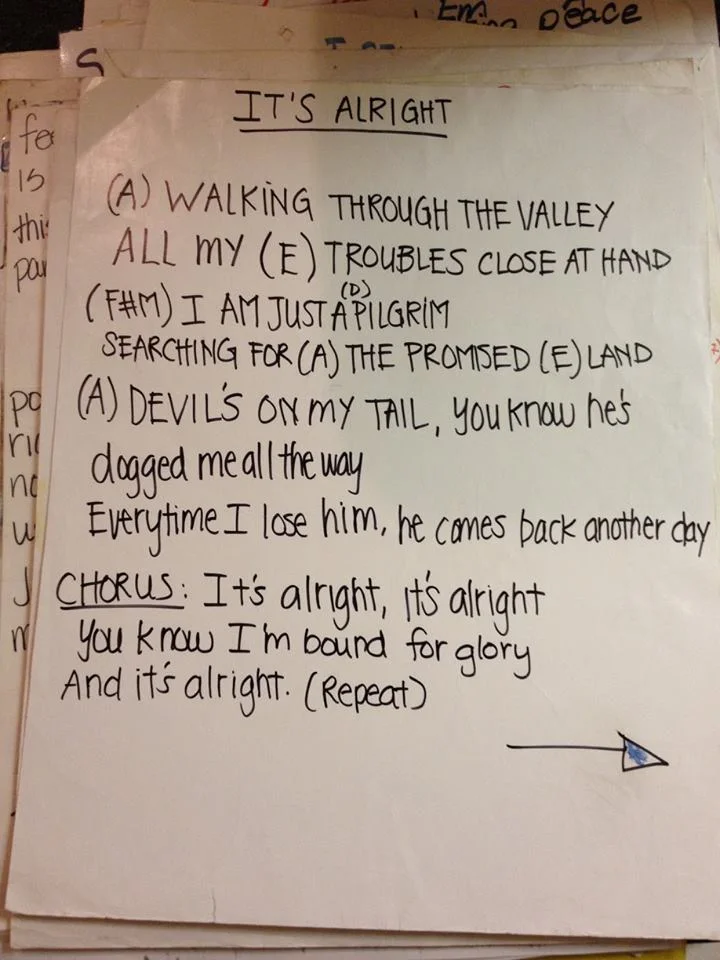 Peace
IT'S ALRIGHT
(A) WALKING THROUGH THE VALLEY
ALL MY (E) TROUBLES CLOSE AT HAND
(D)
(F#M) I AM JUST A PILGRIM
SEARCHING FOR (A) THE PROMISED (E) LAND
(A) DEVIL'S ON MY TAIL, you know he's
dogged me all the way
Everytime I lose him, he comes back another day
CHORUS: It's alright, it's alright
You know I'm bound for glory
And it's alright. (Repeat)